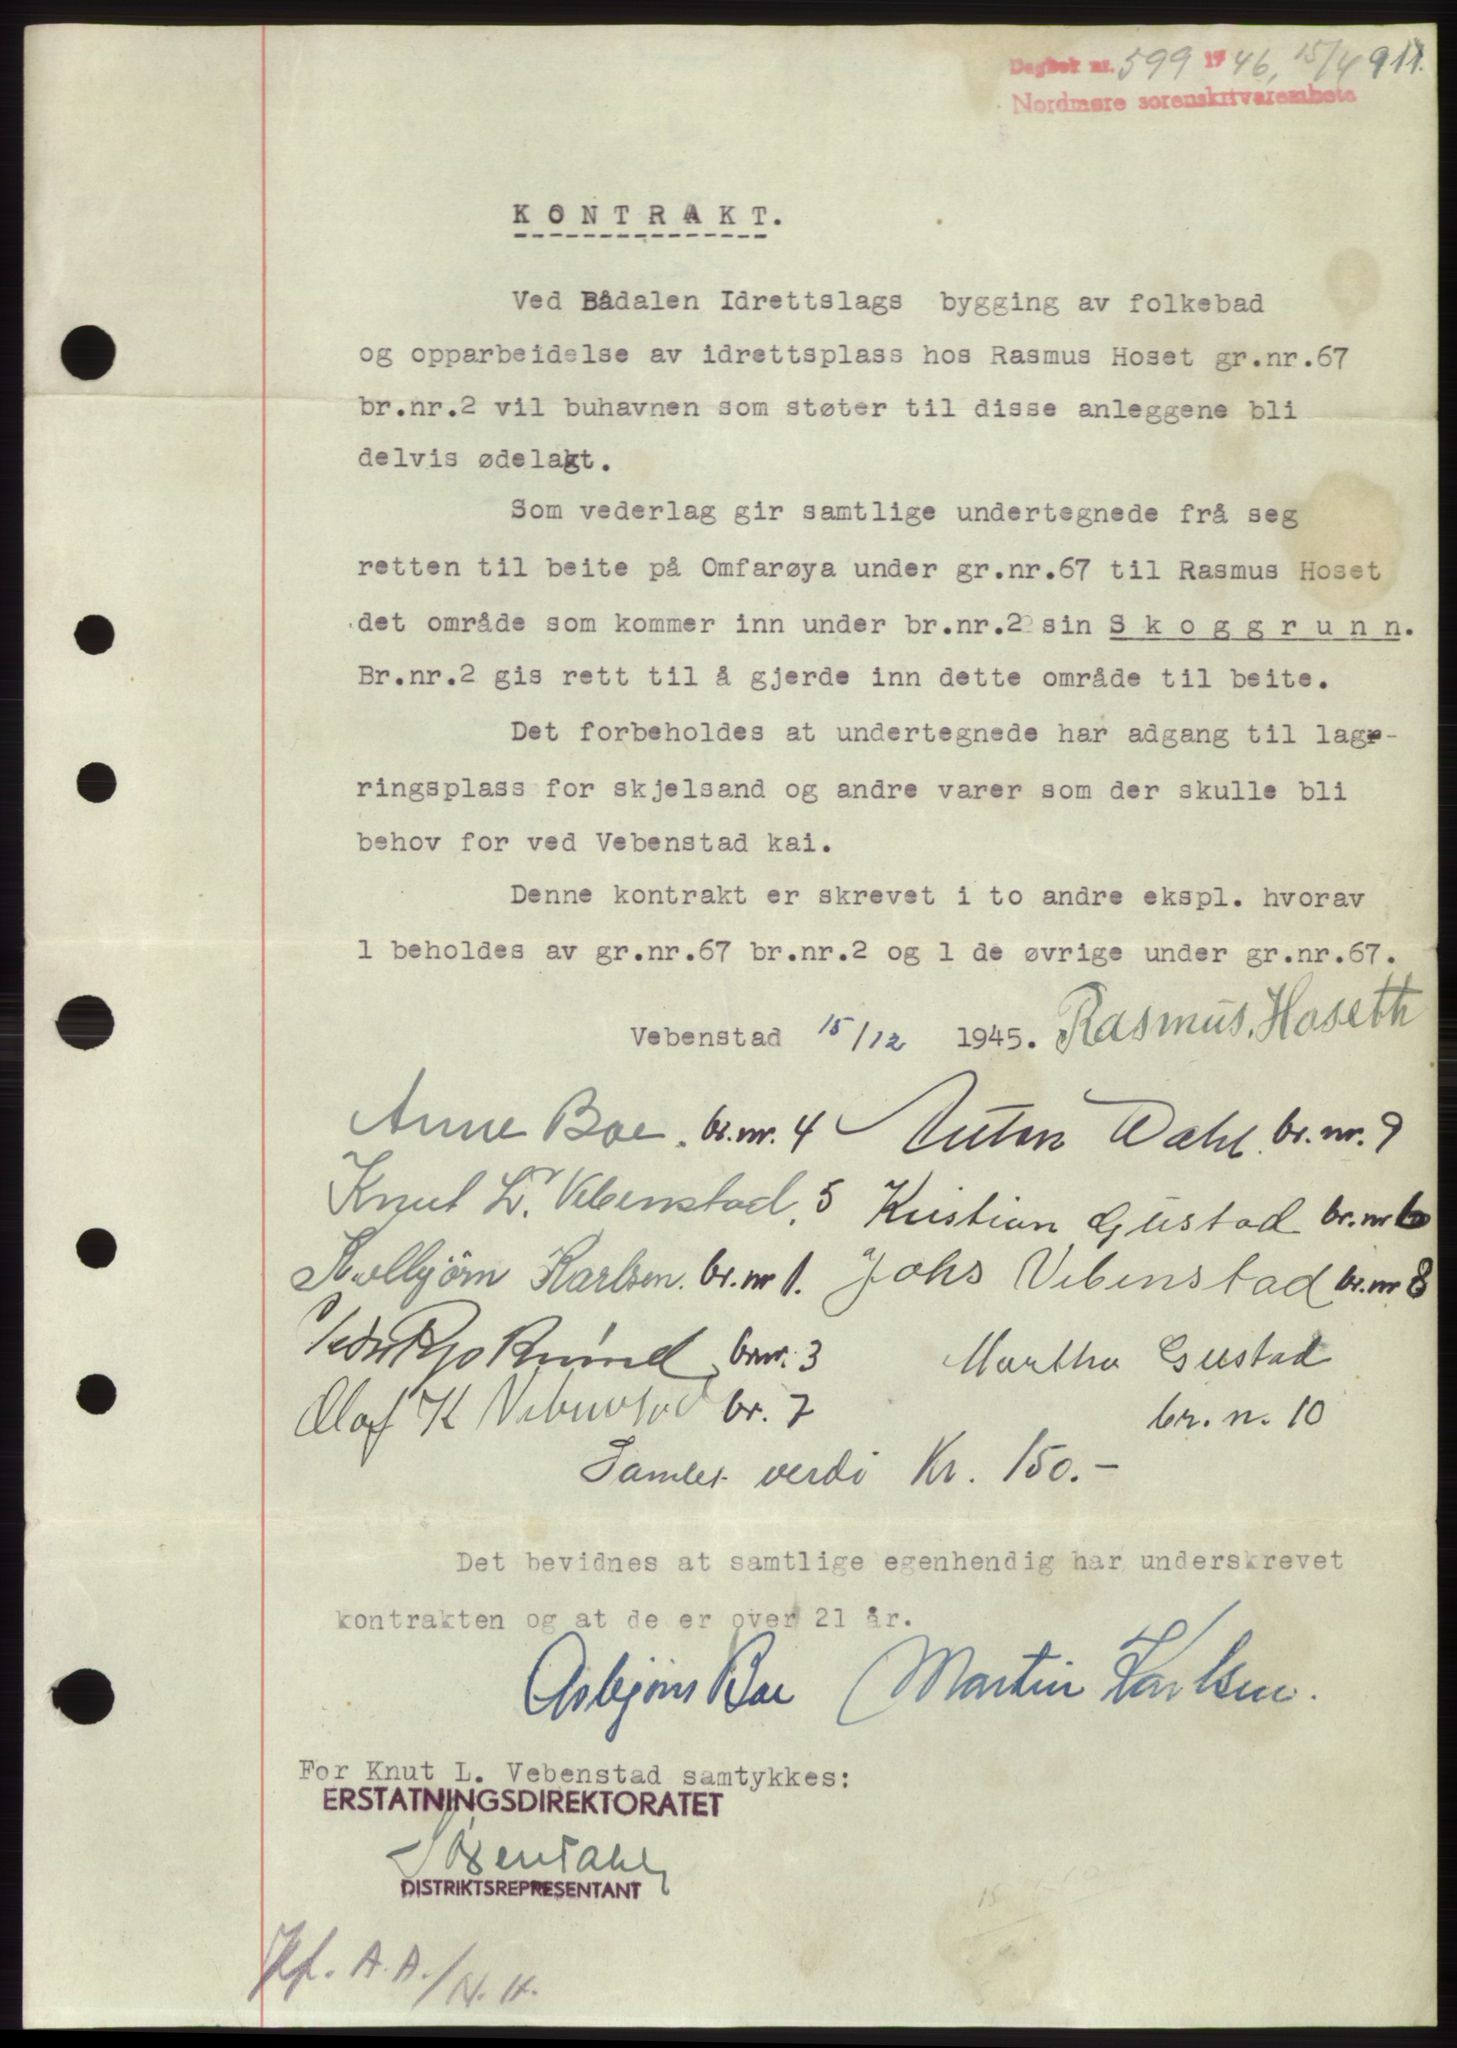 Dagbok nr. 599 1946, 15/4 911.
Nordmøre sorenskrivarembete
KONTRAKT.
Ved Bådalen Idrettslags bygging av folkebad
og opparbeidelse av idrettsplass hos Rasmus Hoset gr.nr.67
br.nr.2 vil buhavnen som støter til disse anleggene bli
delvis ødelakt.
Som vederlag gir samtlige undertegnede frå seg
retten til beite på Omfarøya under gr.nr.67 til Rasmus Hoset
det område som kommer inn under br.nr.2 sin Skoggrunn.
Br.nr.2 gis rett til å gjerde inn dette område til beite.
Det forbeholdes at undertegnede har adgang til lagr-
ringsplass for skjelsand og andre varer som der skulle bli
behov for ved Vebenstad kai.
Denne kontrakt er skrevet i to andre ekspl. hvorav
1 beholdes av gr.nr.67 br.nr.2 og 1 de øvrige under gr.nr.67.
Vebenstad 15/12 1945. Rasmus Hoseth
Anne Boe. br.nr. 4 Anton Dahl. br.nr. 9
Knut L. Vebenstad, 5 Kristian Gustad br.nr 6
Kolbjörn Karlsen. br.nr 1. Johs Vebenstad br.nr 8
br.nr. 3 Martha Gustad
Olaf K Vebenstad br. 7 br. n. 10
Samlet verdi Kr. 150.-
Det bevidnes at samtlige egenhendig har underskrevet
kontrakten og at de er over 21 år.
Asbjörn Boe Martin Karlsen.
For Knut L. Vebenstad samtykkes:
ERSTATNINGSDIREKTORATET
DISTRIKTSREPRESENTANT
Jf. A.A./N.H.